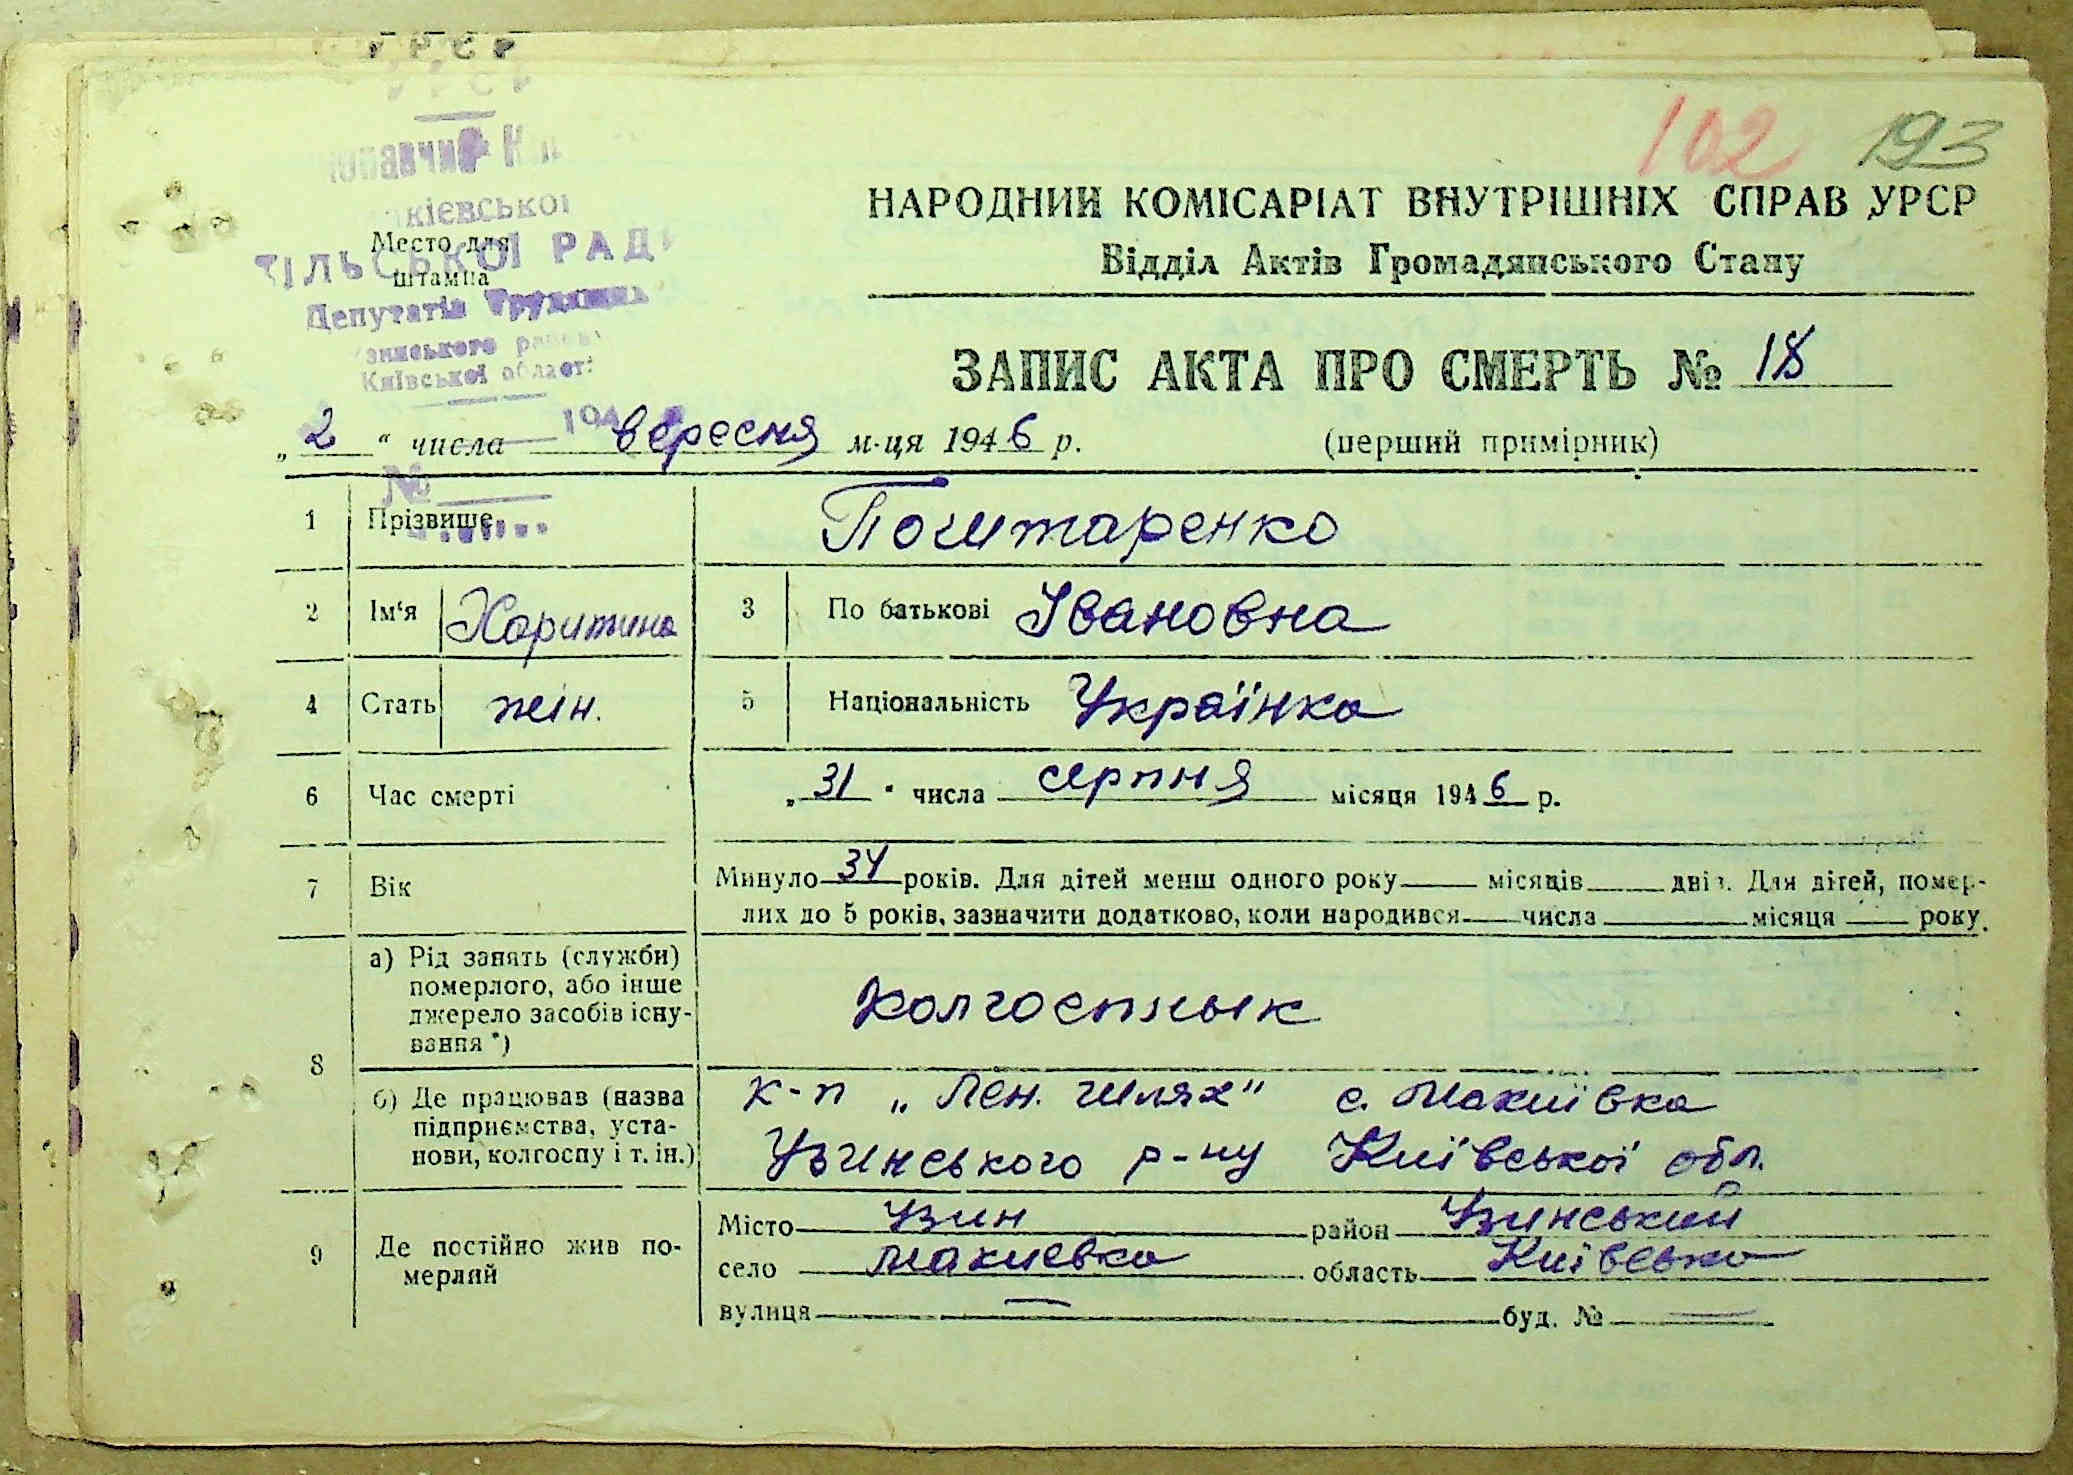 102 193
НАРОДНИЙ КОМІСАРІАТ ВНУТРІШНІХ СПРАВ УРСР
Відділ Актів Громадянського Стану
Место для
штампа
СІЛЬСЬКОЇ РАДИ
Депутатів Трудящих
Київської області
ЗАПИС АКТА ПРО СМЕРТЬ № 18
„ 2 “ числа вересня м-ця 1946 р. (перший примірник)
№
1 Прізвище Пошитаренко
2 Ім‘я Харитина 3 По батькові Івановна
4 Стать жін. 5 Національність Українка
6 Час смерті „ 31 “ числа серпня місяця 1946 р.
7 Вік Минуло 34 років. Для дітей менш одного року місяців днів. Для дітей, помер-
лих до 5 років, зазначити додатково, коли народився числа місяця року.
8 а) Рід занять (служби)
померлого, або інше
джерело засобів існу-
вання *) колгоспнык
б) Де працював (назва
підприємства, уста-
нови, колгоспу і т. ін.) к-п „Лен. шлях" с. Макиївка
Узинського р-ну Київської обл.
9 Де постійно жив по-
мерлий
Місто Узин район Узинський
село Макиевка область Київська
вулиця — буд. № —